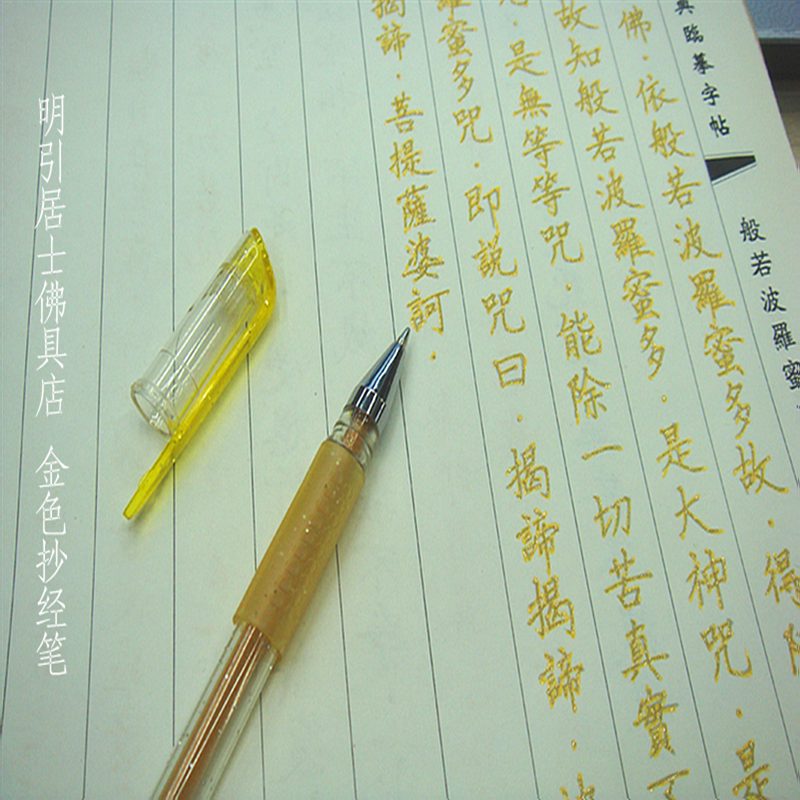 典臨摹字帖
般若波羅蜜
佛·依般若波羅蜜多故·得
故知般若波羅蜜多·是大神咒·是
是無等等咒·能除一切苦真實不
羅蜜多咒·即説咒曰·揭諦揭諦·
揭諦·菩提薩婆訶·
明引居士佛具店 金色抄经笔